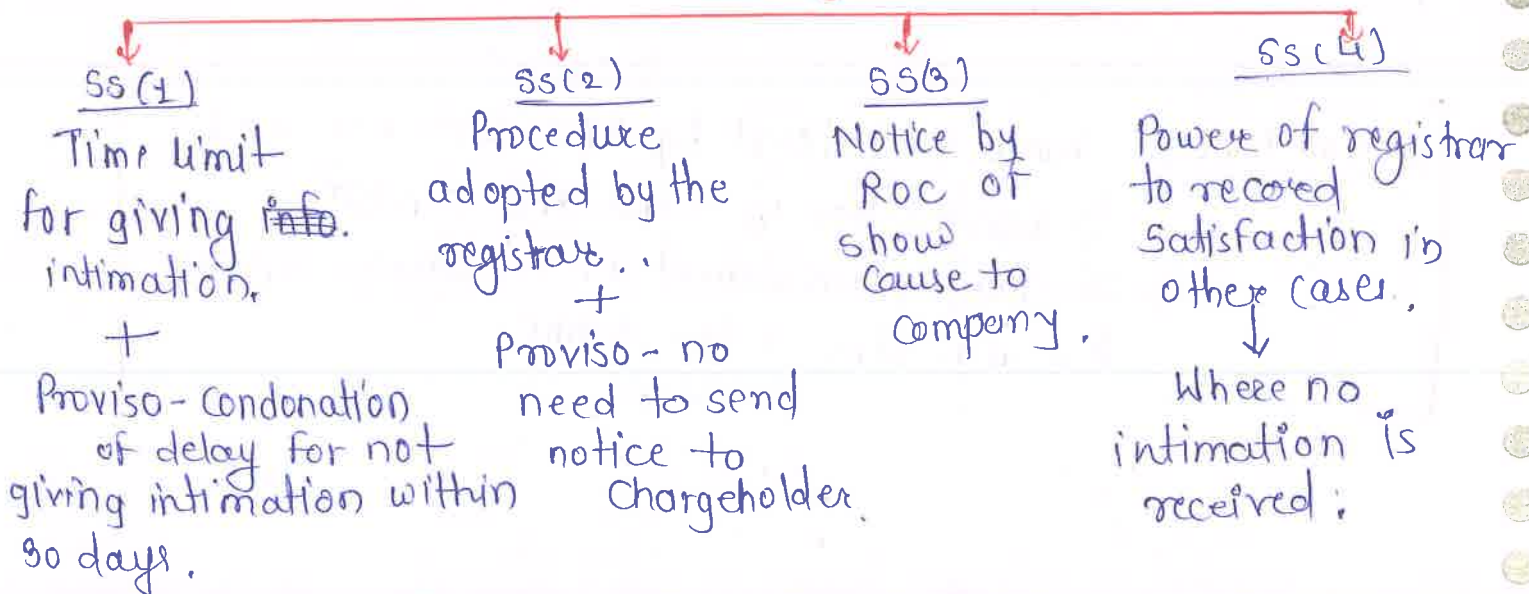 SS(1)
Time limit
for giving info.
intimation.
+
Proviso - Condonation
of delay for not
giving intimation within
30 days.
SS(2)
Procedure
adopted by the
registrar..
+
Proviso - no
need to send
notice to
Chargeholder.
SS(3)
Notice by
ROC of
show
cause to
company.
SS(4)
Power of registrar
to record
Satisfaction in
other cases.
Where no
intimation is
received.